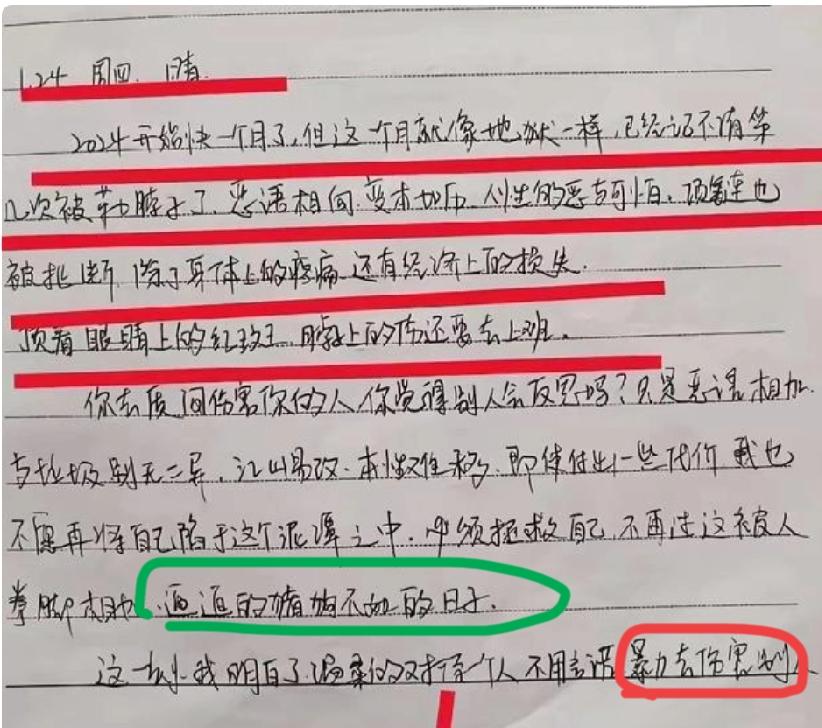 1.24 周四 晴.
2024开始快一个月了,但这一个月就像地狱一样,已经记不清第
几次被勒脖子了.恶语相向.变本加厉.人性的恶与可怕.项链也
被扯断.除了身体上的疼痛.还有经济上的损失.
顶着眼睛上的红斑.脖子上的伤还要去上班.
你去质问伤害你的人,你觉得别人会反思吗?只是恶语相加.
与垃圾别无二异.江山易改.本性难移.即使付出一些代价 我也
不愿再将自己陷于这个泥潭之中.必须拯救自己.不再过这被人
拳脚相加.逼迫的猪狗不如的日子.
这一刻我明白了.温柔的对待一个人 不用言语暴力去伤害别人